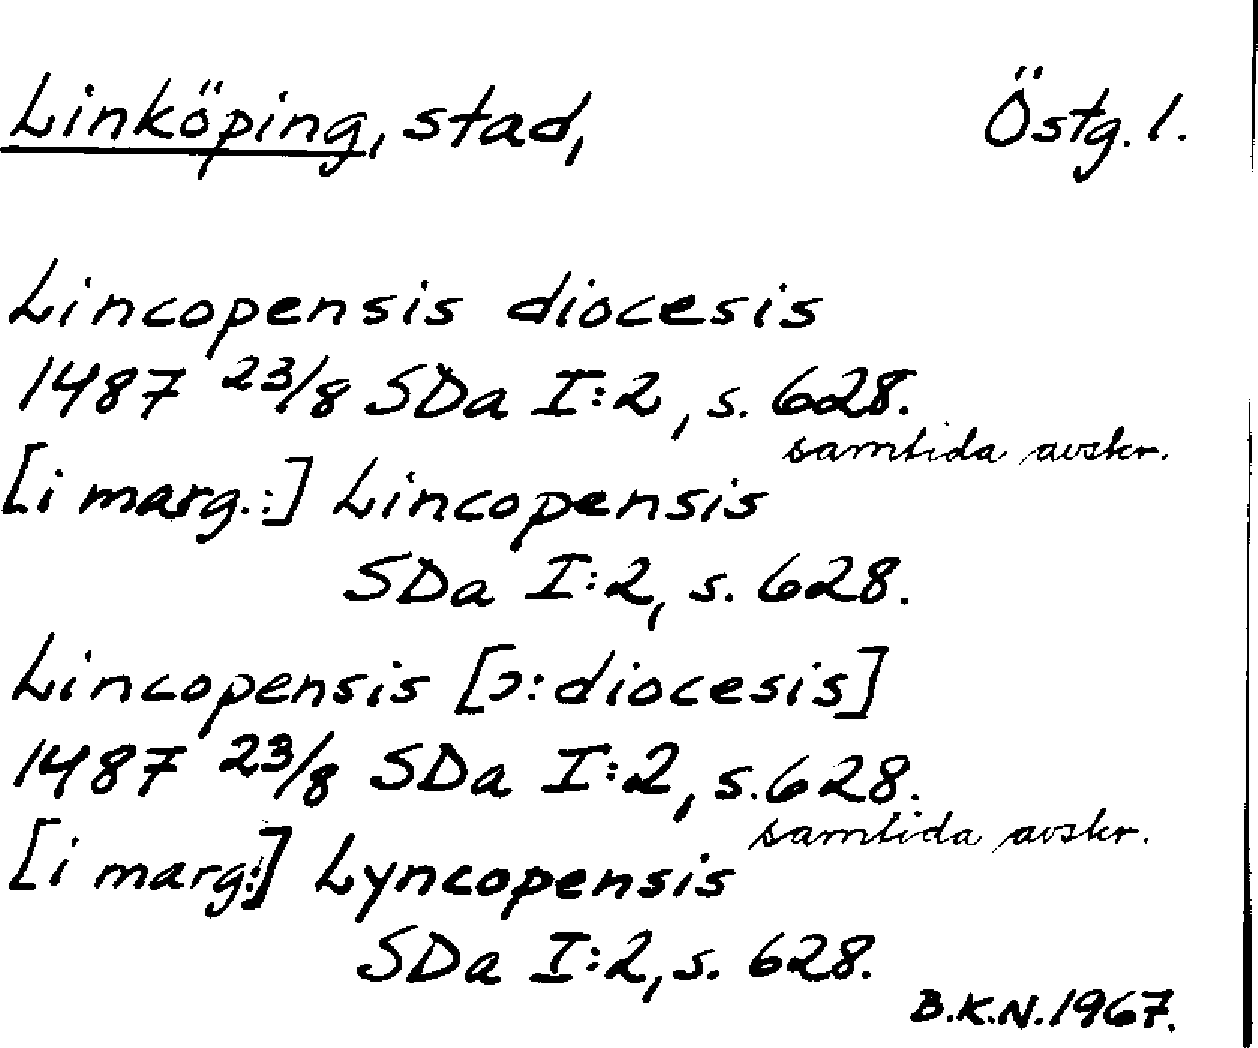 Linköping, stad, Östg. l.
Lincopensis diocesis
1487 23/8 SDa I:2, s. 628.
samtida avskr.
[i marg.:] Lincopensis
SDa I:2, s. 628.
Lincopensis [ɔ: diocesis]
1487 23/8 SDa I:2, s. 628.
samtida avskr.
[i marg:] Lyncopensis
SDa I:2, s. 628.
B.K.N. 1967.